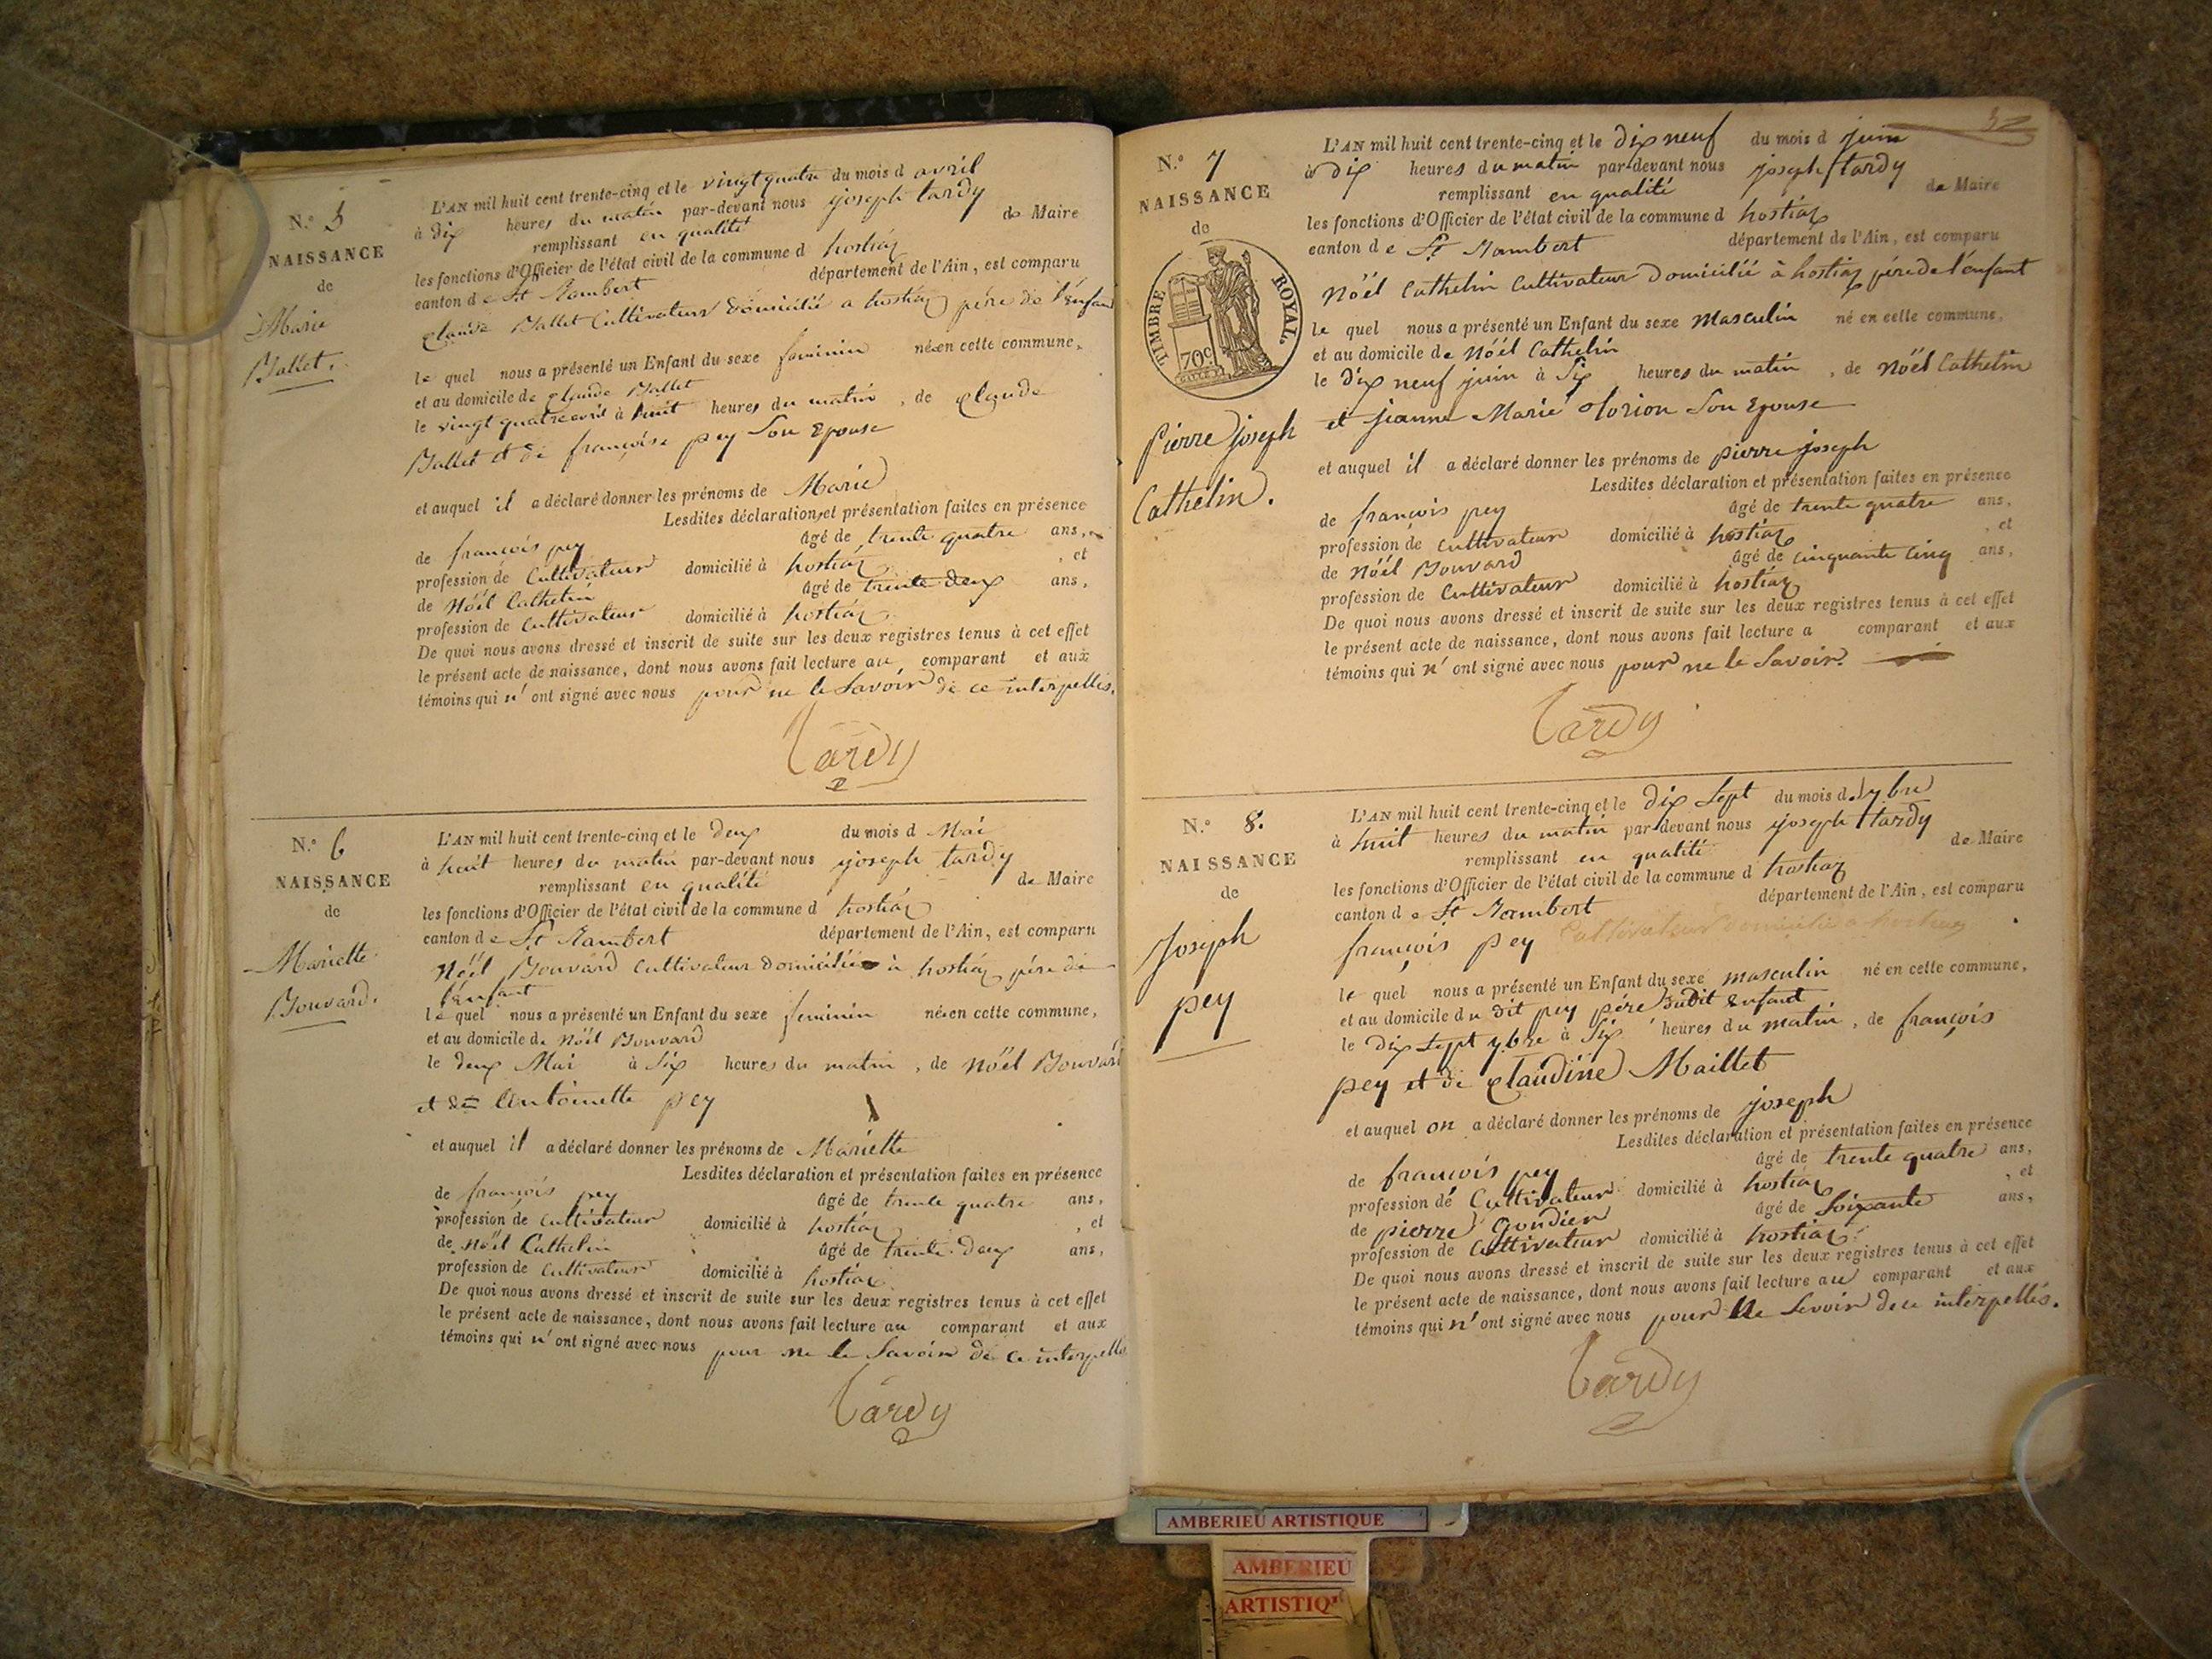 N.° 5
NAISSANCE
de
Marie
Ballet.
L'AN mil huit cent trente-cinq et le vingt quatre du mois d avril
à dix heures du matin par-devant nous joseph tardy
remplissant en qualité de Maire
les fonctions d'Officier de l'état civil de la commune d hostiaz
canton de St Rambert département de l'Ain, est comparu
Claude Ballet Cultivateur domicilié a hostiaz père de l'enfant
le quel nous a présenté un Enfant du sexe feminin né en cette commune,
et au domicile de Claude Ballet
le vingt quatre avril à huit heures du matin, de Claude
Ballet et de françoise pey Son Epouse
et auquel il a déclaré donner les prénoms de Marie
Lesdites déclaration et présentation faites en présence
de françois pey âgé de trente quatre ans,
profession de Cultivateur domicilié à hostiaz, et
de Nöël Cathelin âgé de trente deux ans,
profession de Cultivateur domicilié à hostiaz.
De quoi nous avons dressé et inscrit de suite sur les deux registres tenus à cet effet
le présent acte de naissance, dont nous avons fait lecture au comparant et aux
témoins qui n' ont signé avec nous pour ne le Savoir de ce interpellés.
Tardy
N.° 6
NAISSANCE
de
Mariette
Bouvard.
L'AN mil huit cent trente-cinq et le deux du mois d Mai
à huit heures du matin par-devant nous joseph tardy
remplissant en qualité de Maire
les fonctions d'Officier de l'état civil de la commune d hostiaz
canton de St Rambert département de l'Ain, est comparu
Nöël Bouvard Cultivateur domicilié à hostiaz père de
l'enfant
le quel nous a présenté un Enfant du sexe feminin né en cette commune,
et au domicile de Nöël Bouvard
le deux Mai à Six heures du matin, de Nöël Bouvard
et de Antoinette pey
et auquel il a déclaré donner les prénoms de Mariette
Lesdites déclaration et présentation faites en présence
de françois pey âgé de trente quatre ans,
profession de Cultivateur domicilié à hostiaz, et
de Nöël Cathelin âgé de trente deux ans,
profession de Cultivateur domicilié à hostiaz
De quoi nous avons dressé et inscrit de suite sur les deux registres tenus à cet effet
le présent acte de naissance, dont nous avons fait lecture au comparant et aux
témoins qui n' ont signé avec nous pour ne le Savoir de ce interpellés
Tardy
32
N.° 7
NAISSANCE
de
TIMBRE ROYAL.
70c
Pierre joseph
Cathelin.
L'AN mil huit cent trente-cinq et le dix neuf du mois d juin
à dix heures du matin par-devant nous joseph tardy
remplissant en qualité de Maire
les fonctions d'Officier de l'état civil de la commune d hostiaz
canton de St Rambert département de l'Ain, est comparu
Nöël Cathelin Cultivateur Domicilié à hostiaz père de l'enfant
le quel nous a présenté un Enfant du sexe Masculin né en cette commune,
et au domicile de Nöël Cathelin
le dix neuf juin à Six heures du matin, de Nöël Cathelin
et jeanne Marie Son Epouse
et auquel il a déclaré donner les prénoms de pierre joseph
Lesdites déclaration et présentation faites en présence
de françois pey âgé de trente quatre ans,
profession de Cultivateur domicilié à hostiaz, et
de Nöël Bouvard âgé de cinquante cinq ans,
profession de Cultivateur domicilié à hostiaz
De quoi nous avons dressé et inscrit de suite sur les deux registres tenus à cet effet
le présent acte de naissance, dont nous avons fait lecture a comparant et aux
témoins qui n' ont signé avec nous pour ne le Savoir.
Tardy
N.° 8.
NAISSANCE
de
Joseph
pey
L'AN mil huit cent trente-cinq et le dix Sept du mois d 7bre
à huit heures du matin par-devant nous joseph tardy
remplissant en qualité de Maire
les fonctions d'Officier de l'état civil de la commune d hostiaz
canton de St Rambert département de l'Ain, est comparu
françois pey Cultivateur domicilié a hostiaz
le quel nous a présenté un Enfant du sexe masculin né en cette commune,
et au domicile du dit pey père dudit enfant
le dix sept 7bre à Six heures du matin, de françois
pey et de Claudine Maillet
et auquel on a déclaré donner les prénoms de joseph
Lesdites déclaration et présentation faites en présence
de françois pey âgé de trente quatre ans,
profession de Cultivateur domicilié à hostiaz, et
de pierre Goudier âgé de Soixante ans,
profession de Cultivateur domicilié à hostiaz
De quoi nous avons dressé et inscrit de suite sur les deux registres tenus à cet effet
le présent acte de naissance, dont nous avons fait lecture au comparant et aux
témoins qui n' ont signé avec nous pour Ne Savoir de ce interpellés.
Tardy
AMBERIEU ARTISTIQUE
AMBERIEU
ARTISTIQ